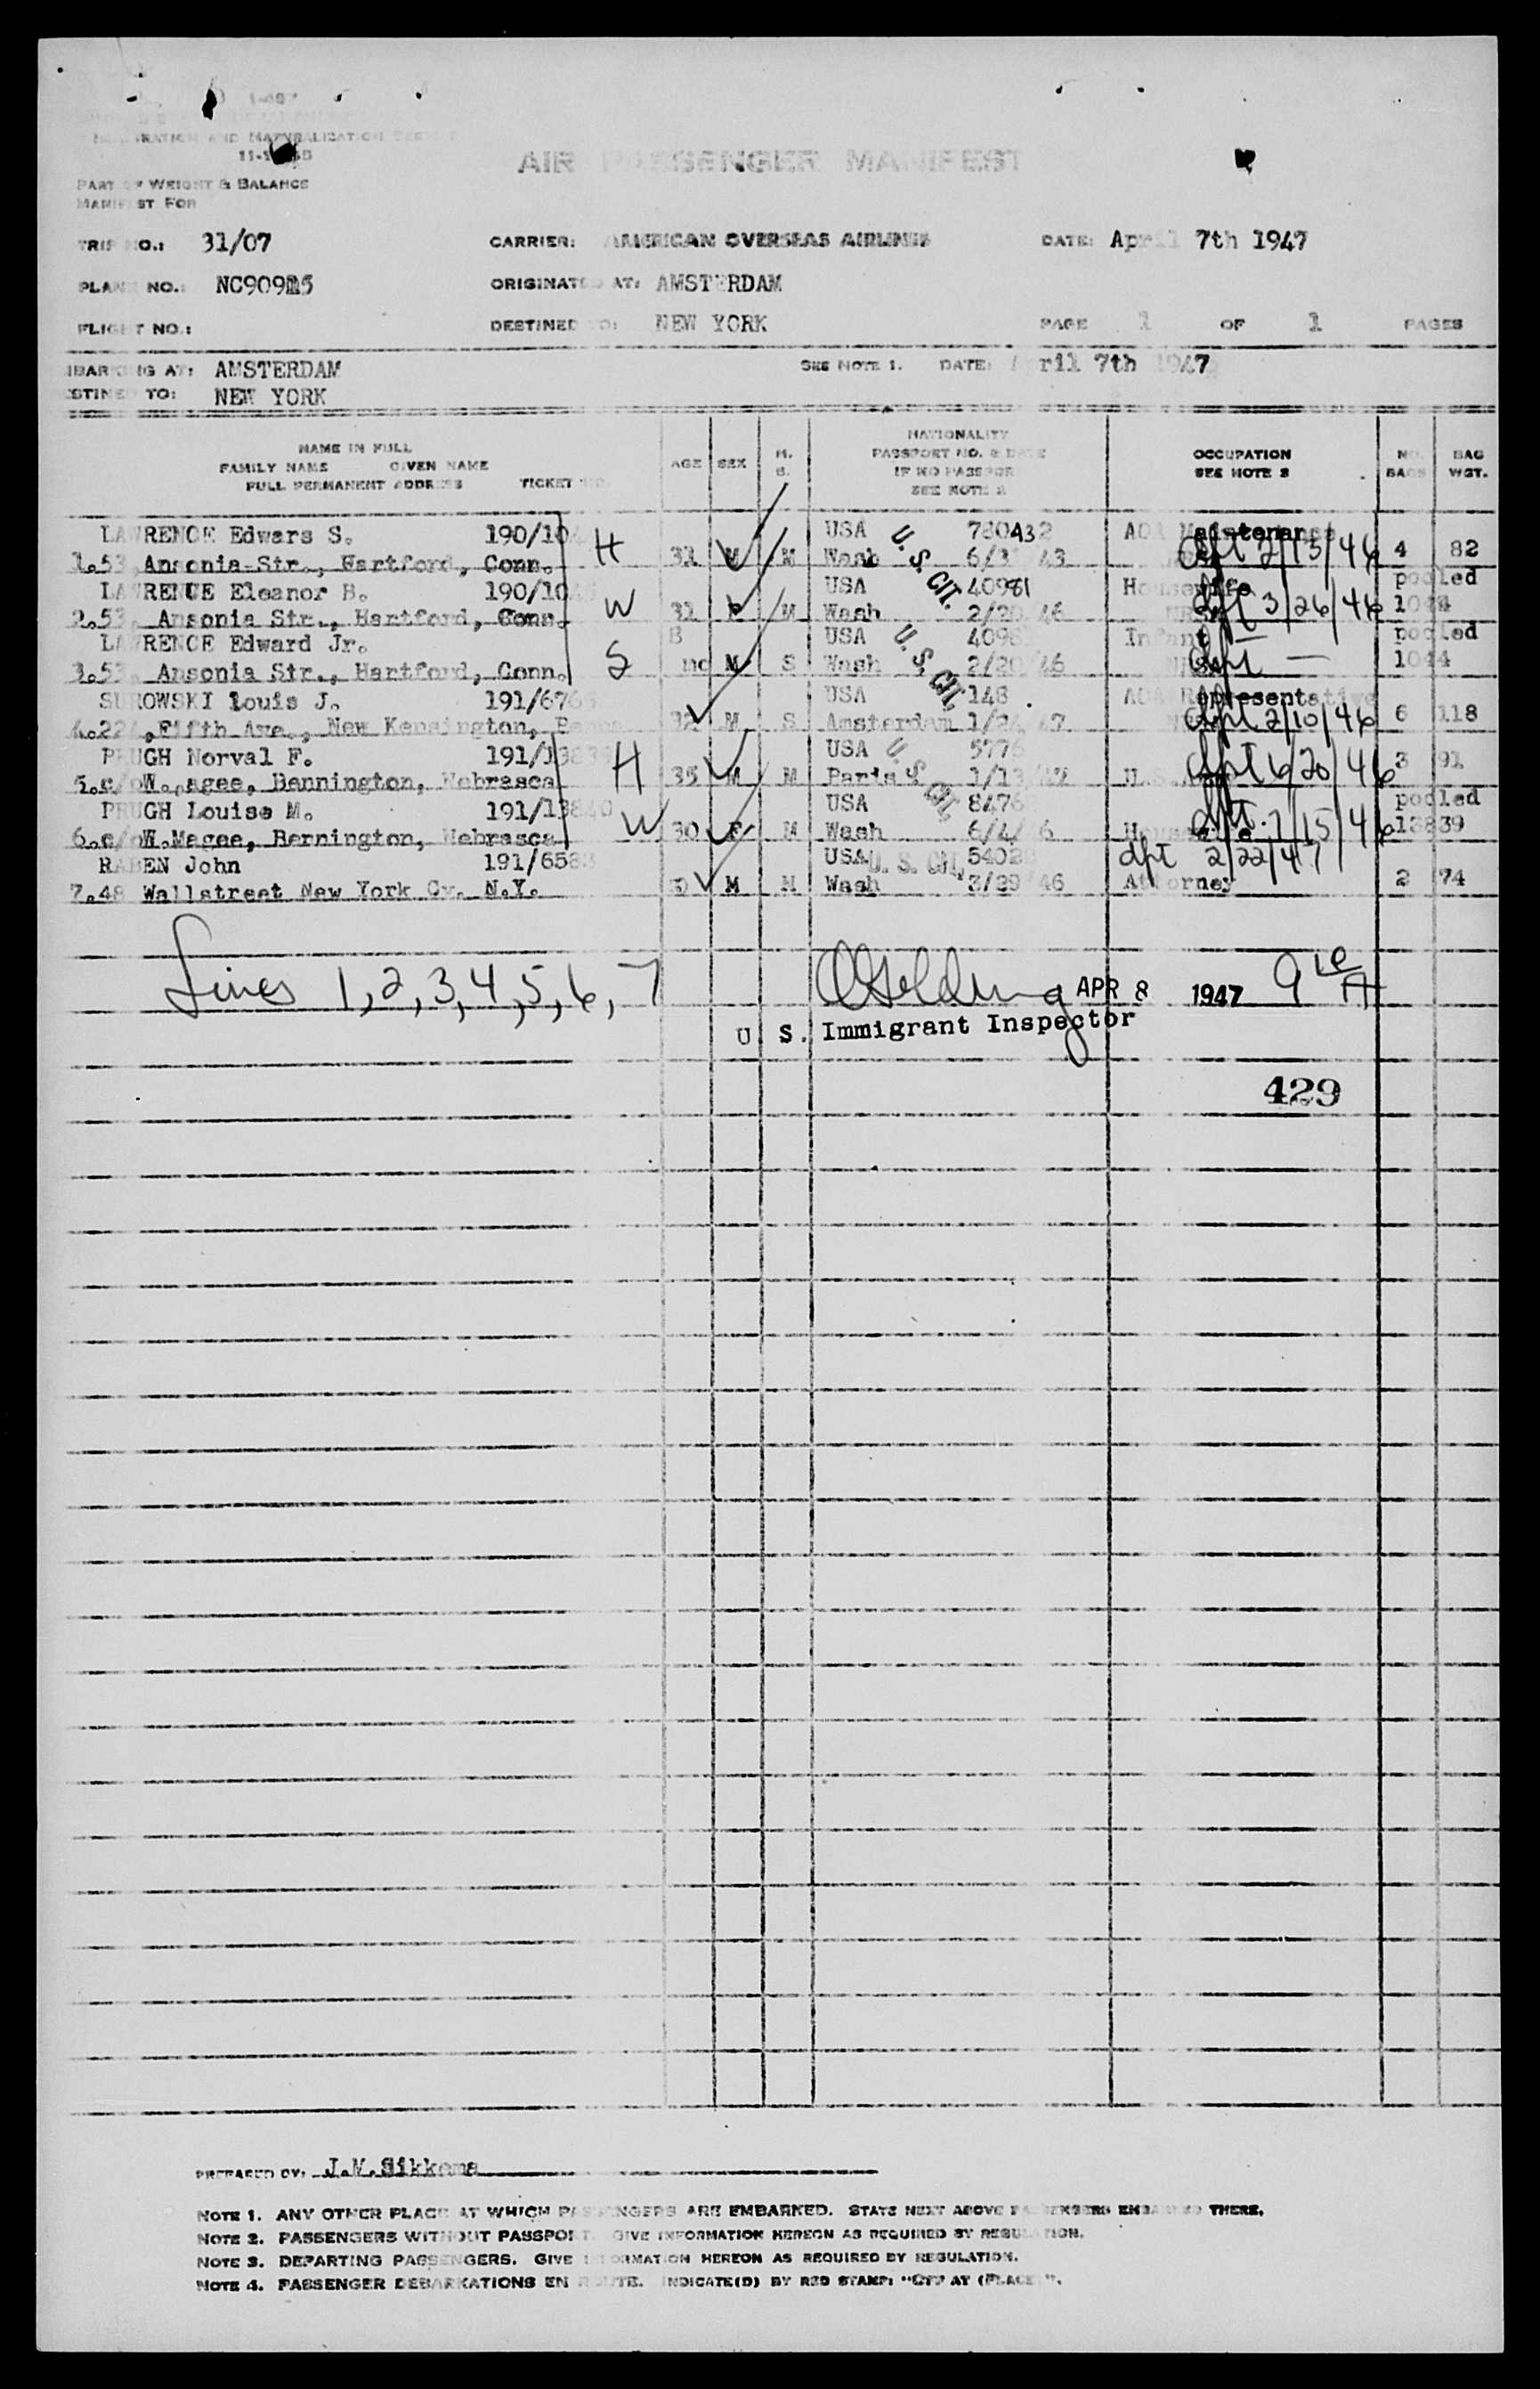 AIR PASSENGER MANIFEST
PART OF WEIGHT & BALANCE
MANIFEST FOR
TRIP NO.: 31/07 CARRIER: AMERICAN OVERSEAS AIRLINES DATE: April 7th 1947
PLANE NO.: ORIGINATED AT: AMSTERDAM
FLIGHT NO.: DESTINED TO: NEW YORK PAGE 1 OF 1 PAGES
EMBARKING AT: AMSTERDAM SEE NOTE 1. DATE: April 7th 1947
DESTINED TO: NEW YORK
NAME IN FULL
FAMILY NAME GIVEN NAME
FULL PERMANENT ADDRESS TICKET NO.
AGE SEX M. S.
NATIONALITY
PASSPORT NO. & DATE
IF NO PASSPORT
SEE NOTE 2
OCCUPATION
SEE NOTE 3
NO. BAGS
BAG WGT.
LAWRENCE Edwars S. 190/10 USA AOA Maintenance
1.53 Ansonia Str., Hartford, Conn. H 31 M M Wash dpt 2/13/46 4 82
LAWRENCE Eleanor B. 190/10 USA 40981 Housewife pooled
2.53 Ansonia Str., Hartford, Conn. W 31 F M Wash 2/20/46 dpt 3/26/46 1044
LAWRENCE Edward Jr. 8 USA Infant pooled
3.53 Ansonia Str., Hartford, Conn. S mo M S Wash 2/20/46 dpt — 1044
SUROWSKI Louis J. 191/676 USA 148 AOA Representative
4.22 , Fifth Ave., New Kensington, Penna. 32 M S Amsterdam dpt 2/10/46 6 118
PRUGH Norval F. 191/13839 USA 3 91
5.c/o W. agee, Bennington, Nebrasca H 35 M M Paris dpt 6/20/46
PRUGH Louise M. 191/13840 USA 8476 pooled
6.c/o W.Magee, Bernington, Nebrasca W 30 F M Wash 6/4/46 Housewife dpt. 7/15/46 13839
RABEN John 191/658 USA 5402 dpt 2/22/47
7.48 Wallstreet New York Cy. N.Y. M M Wash 3/29/46 Attorney 2 74
U. S. CIT.
U. S. CIT.
U. S. CIT.
U. S. CIT.
Lines 1,2,3,4,5,6,7 APR 8 1947
U S. Immigrant Inspector
429
PREPARED BY: J.M.Sikkema
NOTE 1. ANY OTHER PLACE AT WHICH PASSENGERS ARE EMBARKED. STATE NEXT ABOVE PASSENGERS EMBARKED THERE.
NOTE 2. PASSENGERS WITHOUT PASSPORT. GIVE INFORMATION HEREON AS REQUIRED BY REGULATION.
NOTE 3. DEPARTING PASSENGERS. GIVE INFORMATION HEREON AS REQUIRED BY REGULATION.
NOTE 4. PASSENGER DEBARKATIONS EN ROUTE. INDICATE(D) BY RED STAMP: "OFF AT (PLACE)".